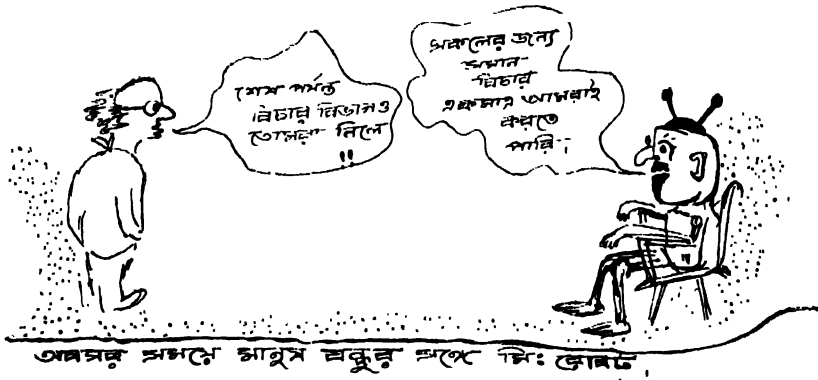 শেষ পর্যন্ত
বিচার বিভাগও
তোমরা নিলে
!!
সকলের জন্য
সমান
বিচার
একমাত্র আমরাই
করতে
পারি;
অবসর সময়ে মানুষ বন্ধুর সঙ্গে মি: রোবট